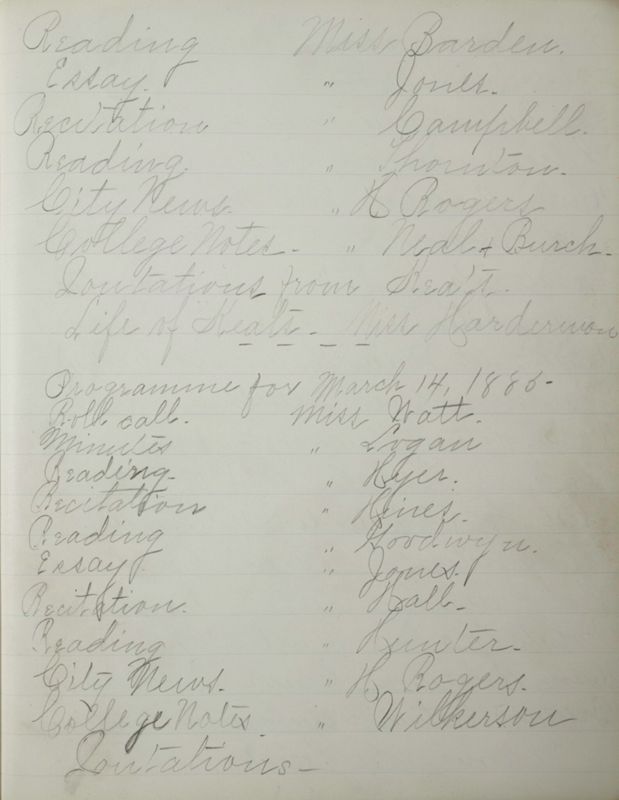 Reading Miss Barden.
Essay. " Jones.
Recitation " Campbell.
Reading. " Thornton.
City News. " H Rogers
College Notes. " Neal & Burch.
Quotations from Keats.
Life of Keats - Miss
Programme for March 14, 1885-
Roll call. Miss Watt.
Minutes " Logan
Reading. " Hyer.
Recitation " Hines.
Reading " Goodwyn.
Essay " Jones.
Recitation. " Hall.
Reading " Hunter.
City News. " H Rogers.
College Notes. " Wilkerson
Quotations-